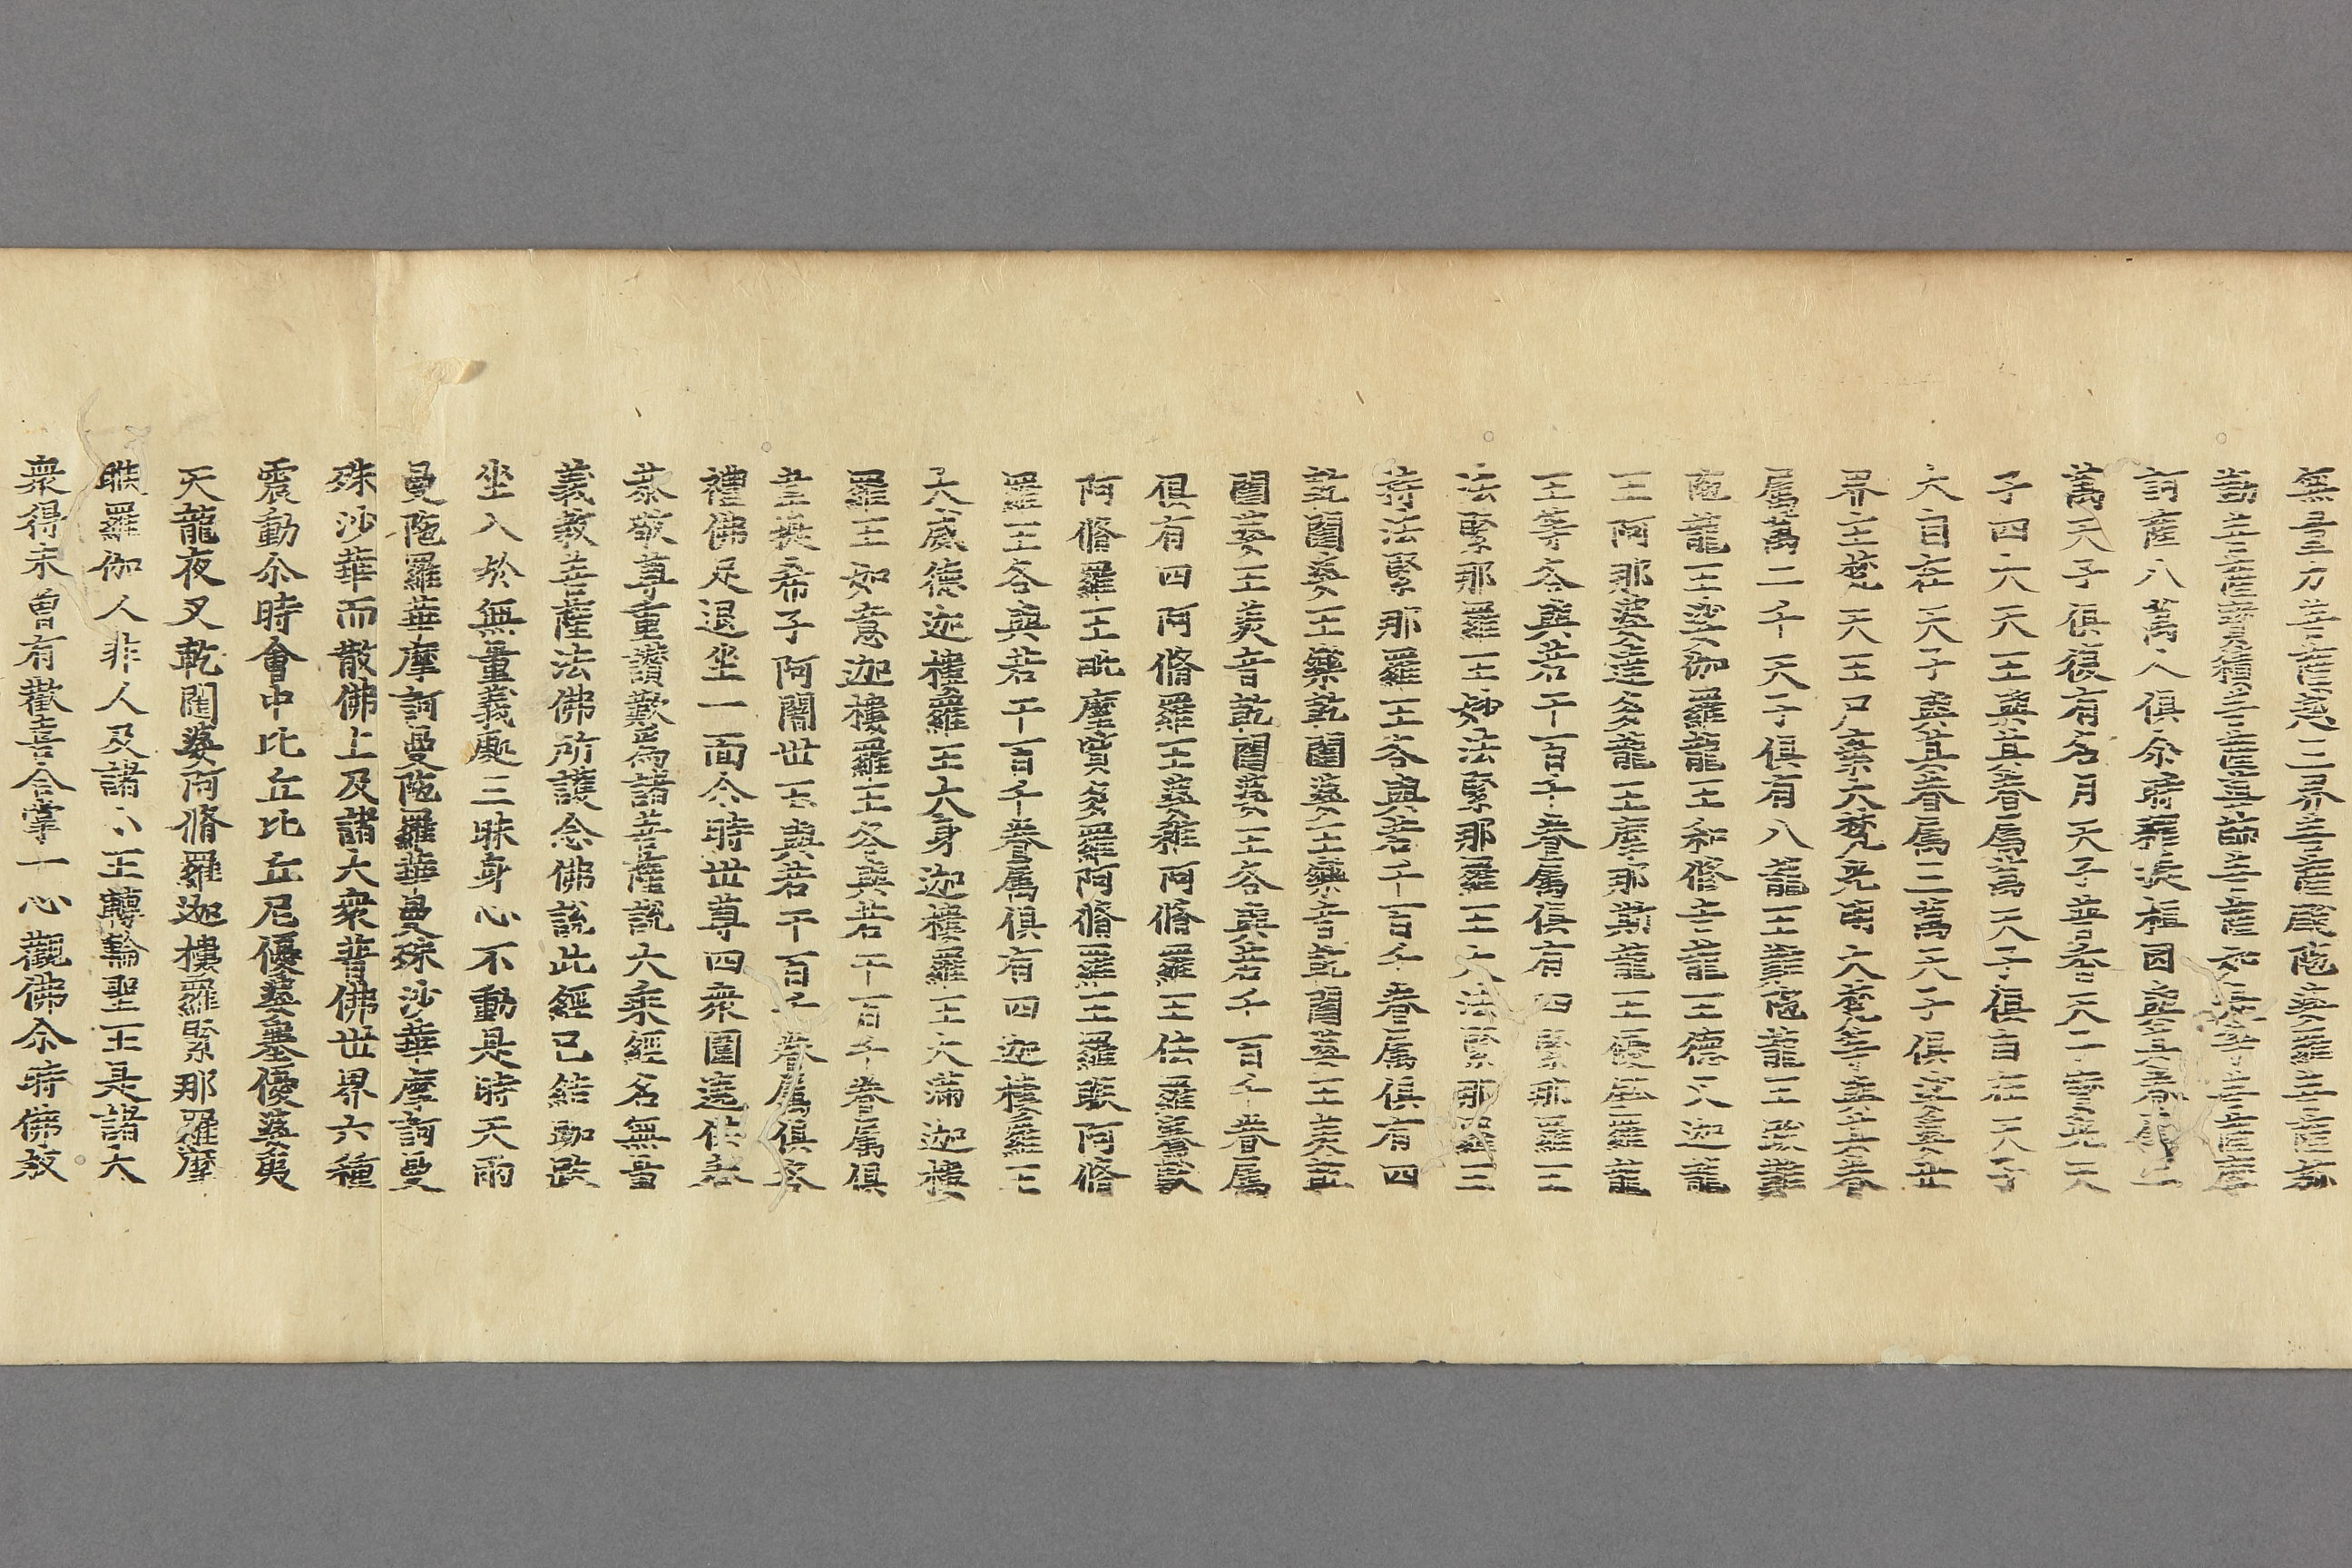 無量力菩薩越三界菩薩颰陀婆羅菩薩弥
勒菩薩寶積菩薩導師菩薩如是等菩薩摩
訶薩八萬人俱尒時釋提桓因與其眷屬二
萬天子俱復有名月天子普香天子寶光天
子四大天王與其眷屬萬天子俱自在天子
大自在天子與其眷屬三萬天子俱娑婆世
界主梵天王尸棄大梵光明大梵等與其眷
屬萬二千天子俱有八龍王難陁龍王跋難
陁龍王娑伽羅龍王和脩吉龍王德叉迦龍
王阿那婆達多龍王摩那斯龍王優鉢羅龍
王等各與若干百千眷屬俱有四緊那羅王
法緊那羅王妙法緊那羅王大法緊那羅王
持法緊那羅王各與若干百千眷屬俱有四
乾闥婆王樂乾闥婆王樂音乾闥婆王美乾
闥婆王美音乾闥婆王各與若干百千眷屬
俱有四阿脩羅王婆稚阿脩羅王佉羅騫馱
阿脩羅王毗摩質多羅阿脩羅王羅睺阿脩
羅王各與若干百千眷屬俱有四迦樓羅王
大威德迦樓羅王大身迦樓羅王大滿迦樓
羅王如意迦樓羅王各與若干百千眷屬俱
韋提希子阿闍世王與若干百千眷屬俱各
禮佛足退坐一面尒時世尊四衆圍遶供養
恭敬尊重讚歎為諸菩薩說大乘經名無量
義教菩薩法佛所護念佛說此經已結跏趺
坐入於無量義處三昧身心不動是時天雨
曼陁羅華摩訶曼陁羅華曼殊沙華摩訶曼
殊沙華而散佛上及諸大衆普佛世界六種
震動尒時會中比丘比丘尼優婆塞優婆夷
天龍夜叉乾闥婆阿脩羅迦樓羅緊那羅摩
睺羅伽人非人及諸小王轉輪聖王是諸大
衆得未曾有歡喜合掌一心觀佛尒時佛放